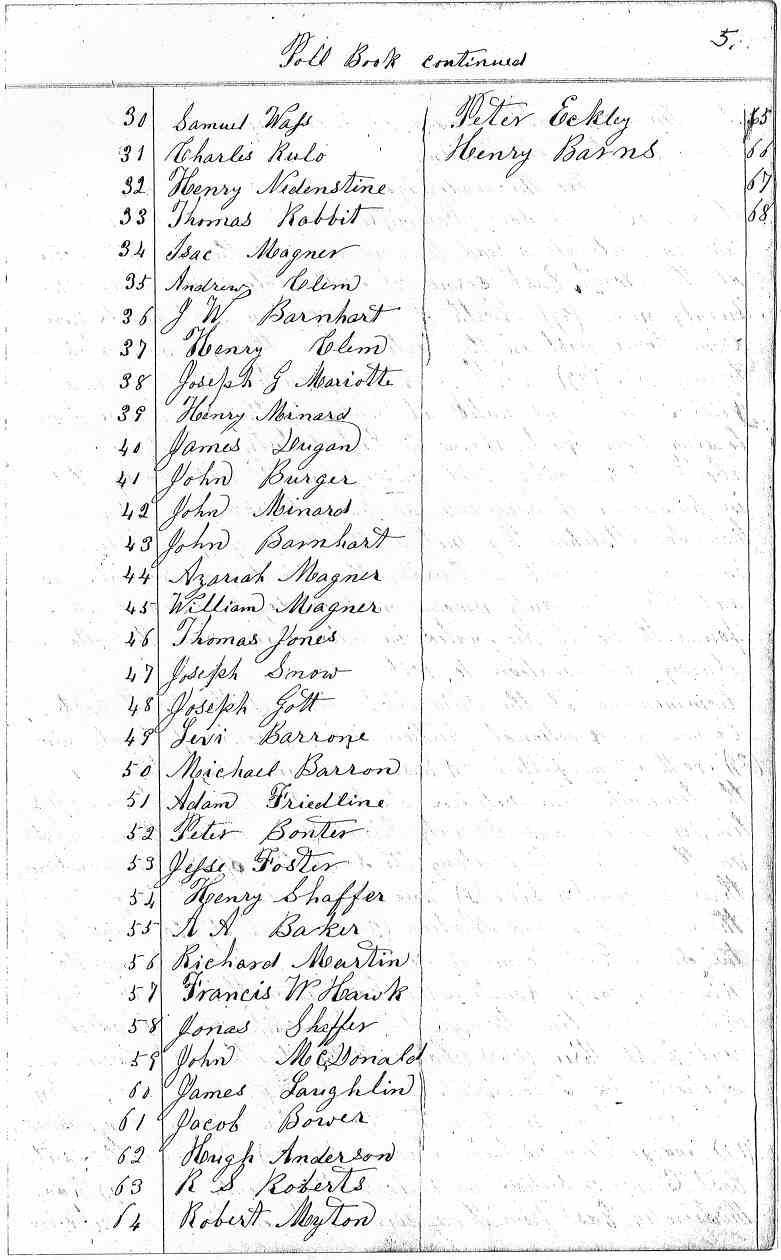 5.
Poll Book continued
30 Samuel Wass Peter Eckley 65
31 Charles Rulo Henry Barns 66
32 Henry Nidenstine 67
33 Thomas Rabbit 68
34 Isac Magner
35 Andrew Clem
36 J W Barnhart
37 Henry Clem
38 Joseph G Mariotte
39 Henry Minard
40 James Dugan
41 John Burger
42 John Minard
43 John Barnhart
44 Azariah Magner
45 William Magner
46 Thomas Jones
47 Joseph Snow
48 Joseph Gott
49 Levi Barrone
50 Michael Barron
51 Adam Friedline
52 Peter Bonter
53 Jesse Foster
54 Henry Shaffer
55 A A Baker
56 Richard Martin
57 Francis W Hawk
58 Jonas Sheffer
59 John McDonald
60 James Laughlin
61 Jacob Bower
62 Hugh Anderson
63 R S Roberts
64 Robert Myton